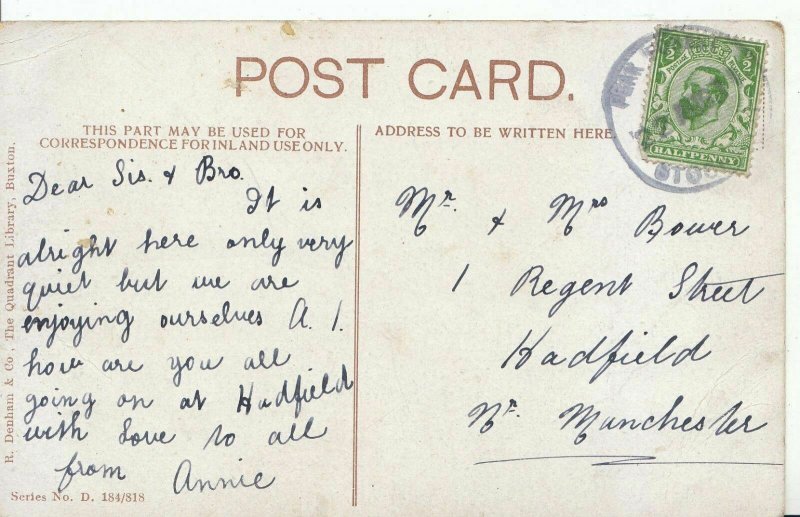 POST CARD.
THIS PART MAY BE USED FOR
CORRESPONDENCE FOR INLAND USE ONLY.
ADDRESS TO BE WRITTEN HERE.
Dear Sis. & Bro.
It is
alright here only very
quiet but we are
enjoying ourselves A. 1.
how are you all
going on at Hadfield
with love to all
from Annie
Mr. & Mrs Bower
1 Regent Street
Hadfield
Nr. Manchester
R. Denham & Co., The Quadrant Library, Buxton.
Series No. D. 184/818
1/2 1/2
POSTAGE REVENUE
HALFPENNY